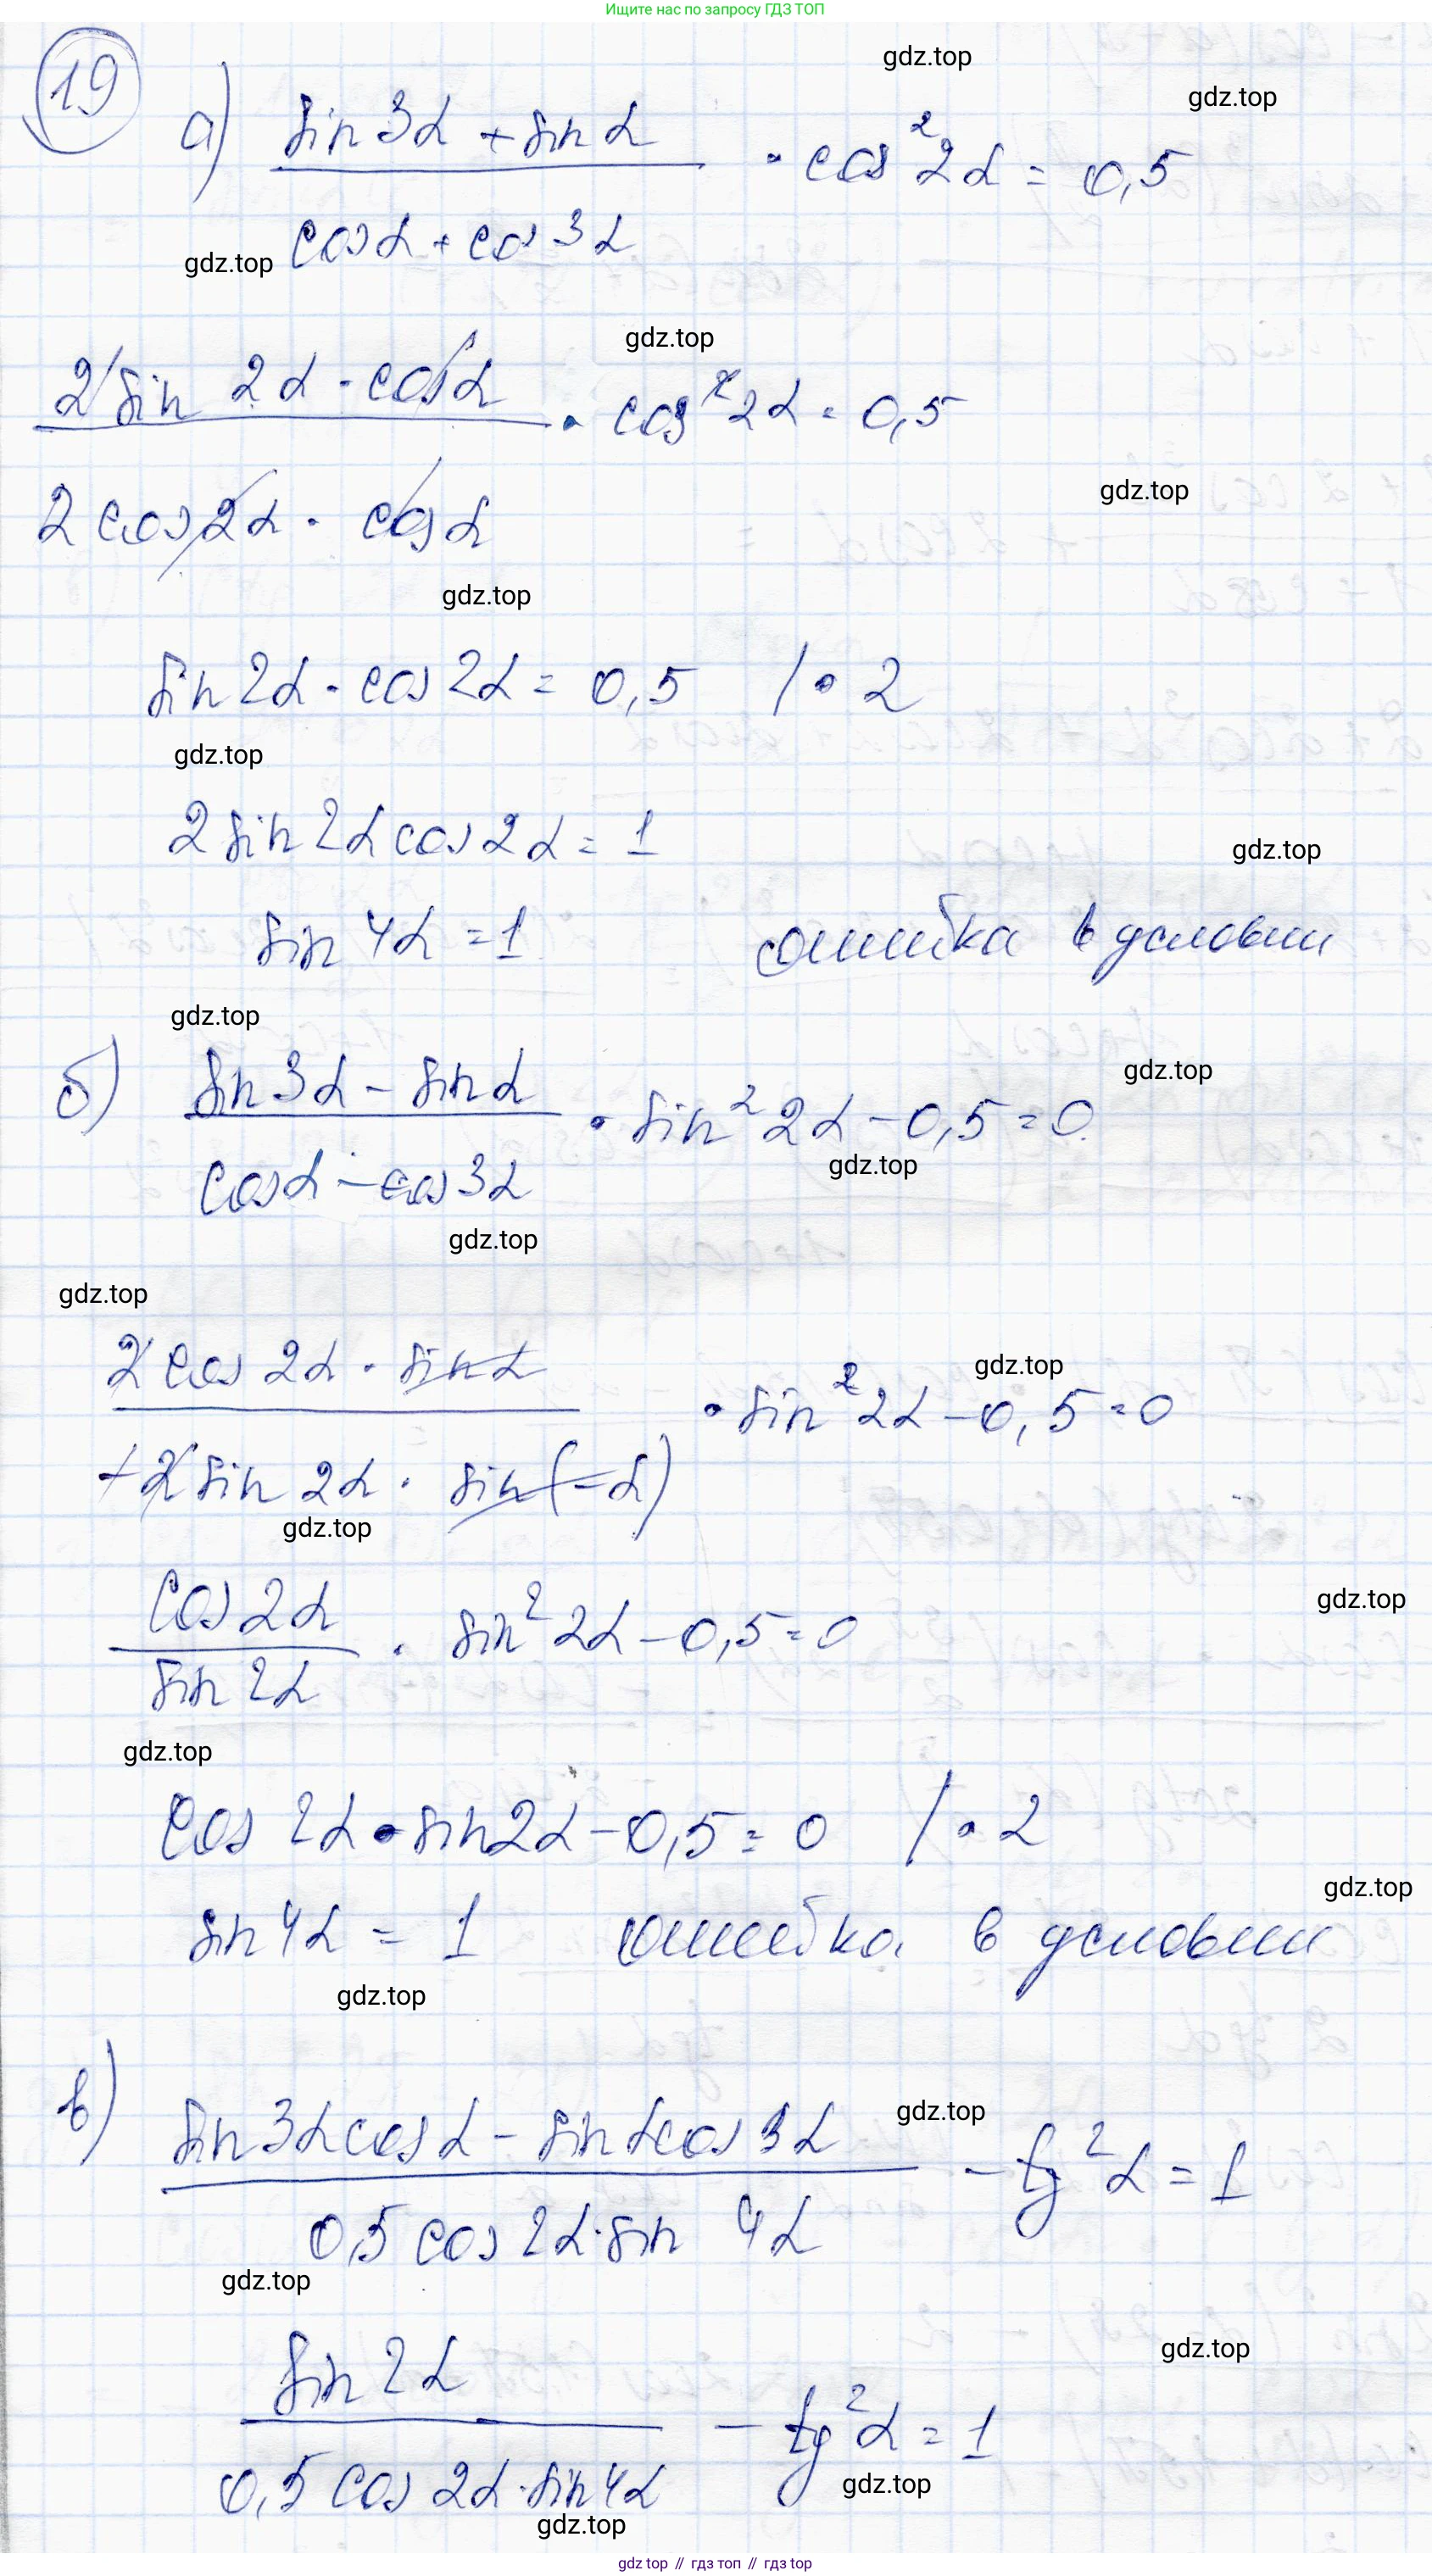 Ищите нас по запросу ГДЗ ТОП
gdz.top
19
gdz.top
а) (sin 3α + sin α) / (cos α + cos 3α) · cos² 2α = 0,5
gdz.top
gdz.top
(2 sin 2α · cos α) / (2 cos 2α · cos α) · cos² 2α = 0,5
gdz.top
gdz.top
sin 2α · cos 2α = 0,5 / · 2
gdz.top
2 sin 2α cos 2α = 1
gdz.top
sin 4α = 1 ошибка в условии
gdz.top
б) (sin 3α − sin α) / (cos α − cos 3α) · sin² 2α − 0,5 = 0
gdz.top
gdz.top
gdz.top
gdz.top
(2 cos 2α · sin α) / (+2 sin 2α · sin(−α)) · sin² 2α − 0,5 = 0
gdz.top
gdz.top
cos 2α / sin 2α · sin² 2α − 0,5 = 0
gdz.top
gdz.top
cos 2α · sin 2α − 0,5 = 0 / · 2
gdz.top
sin 4α = 1 ошибка в условии
gdz.top
в) (sin 3α cos α − sin α cos 3α) / (0,5 cos 2α · sin 4α) − tg² α = 1
gdz.top
gdz.top
gdz.top
sin 2α / (0,5 cos 2α · sin 4α) − tg² α = 1
gdz.top
gdz.top
gdz top // гдз топ // гдз top